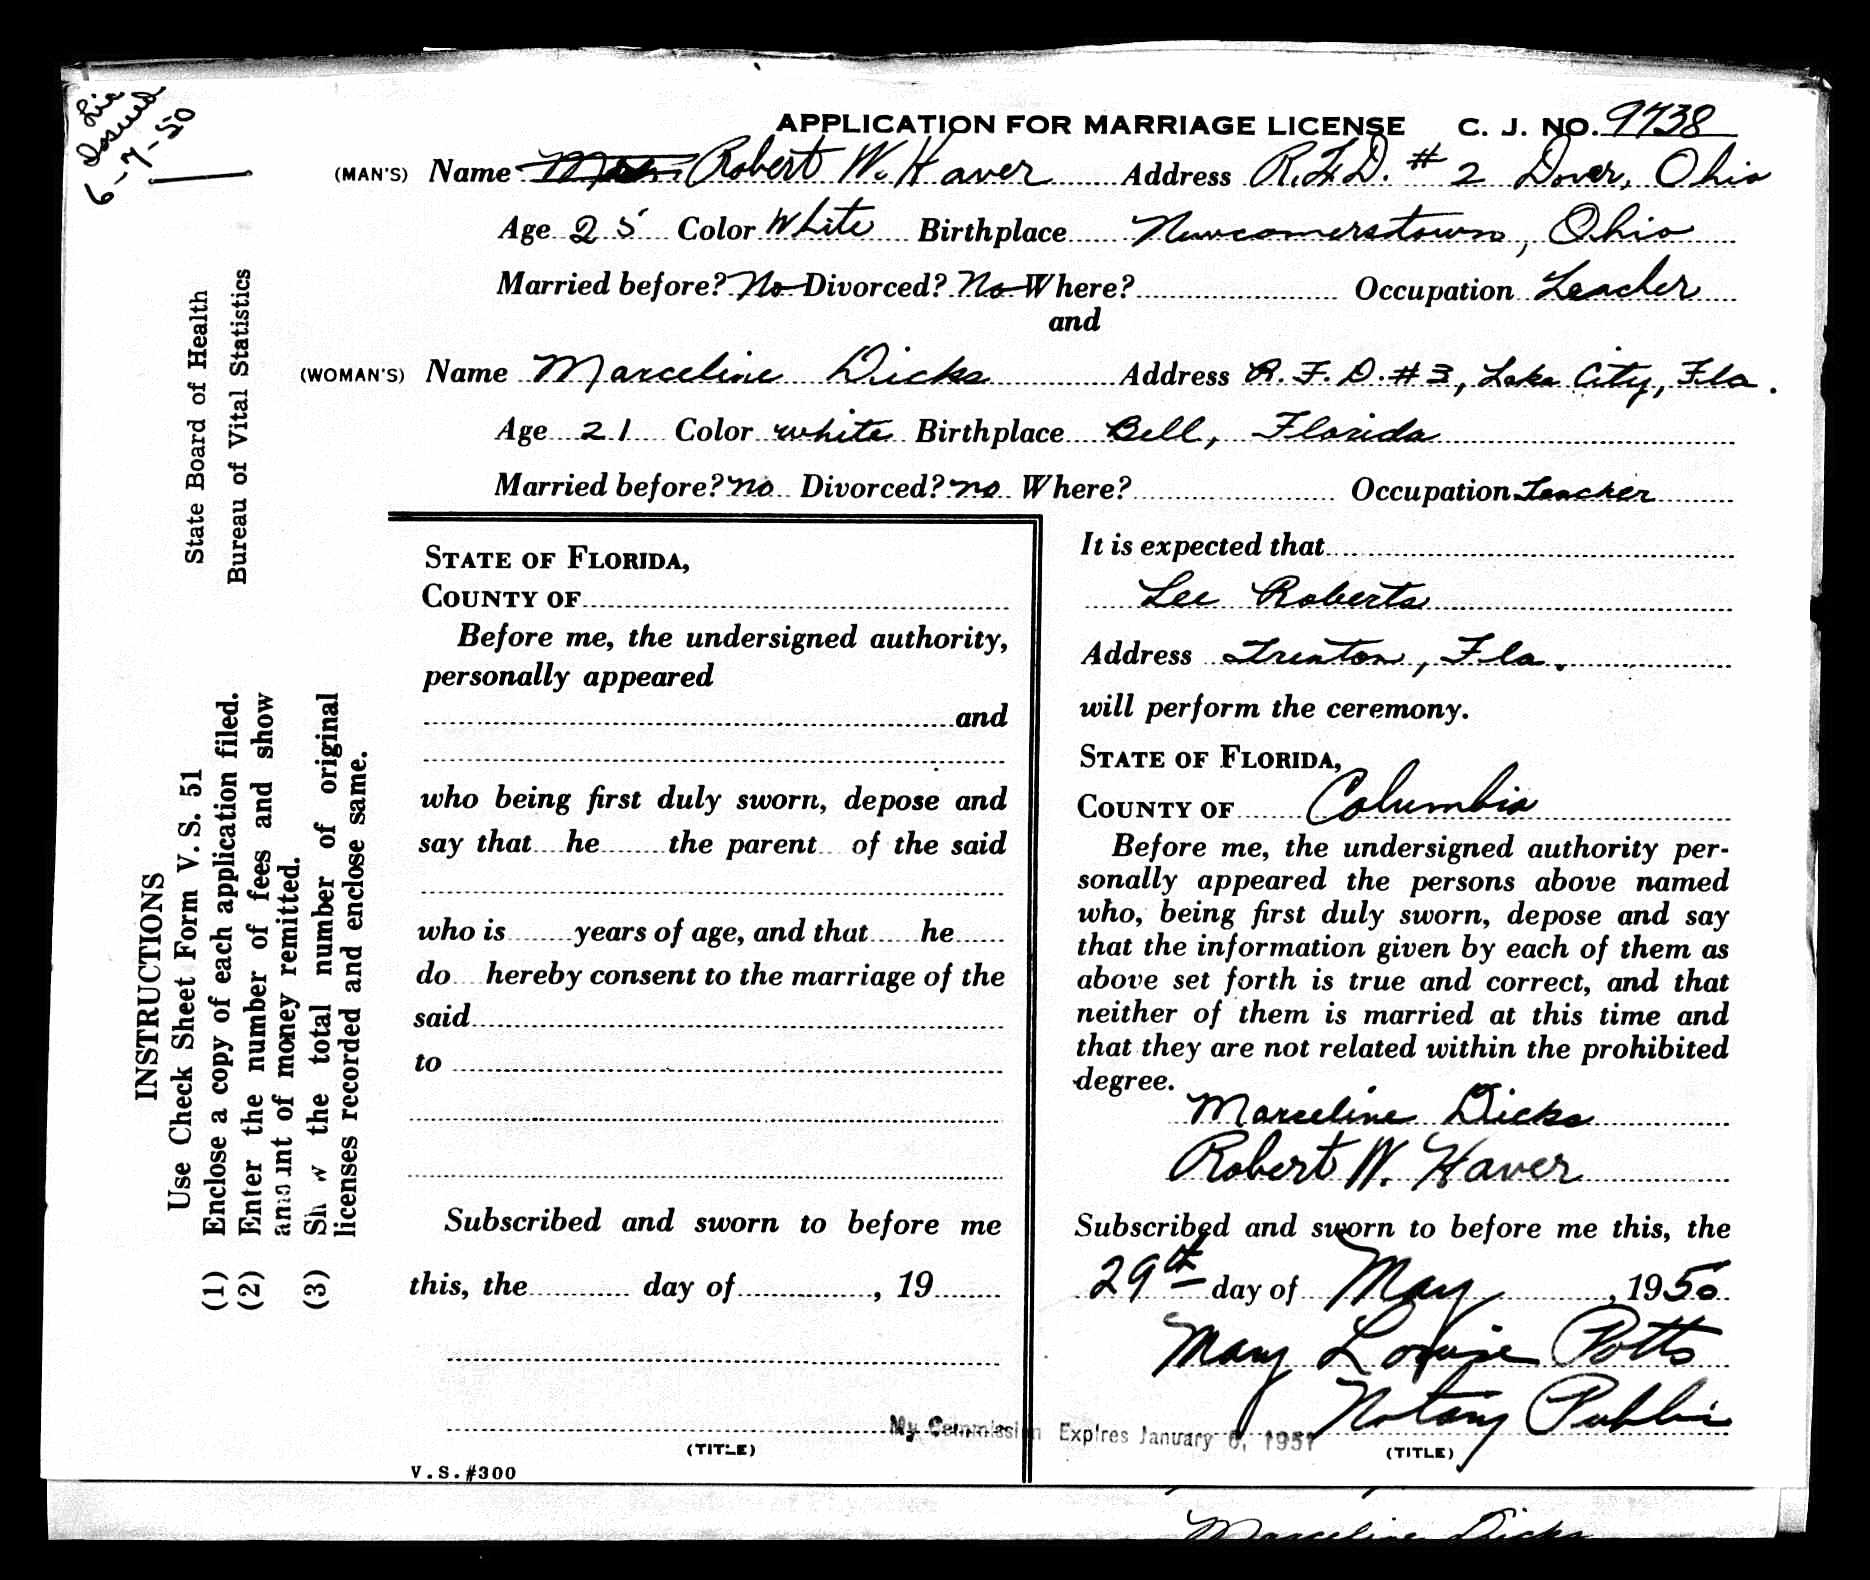 Lic
Issued
6-7-50
APPLICATION FOR MARRIAGE LICENSE C. J. NO. 9738
(MAN'S) Name Robert W. Haver Address R.F.D. # 2 Dover, Ohio
Age 25 Color White Birthplace Newcomerstown, Ohio
Married before? No Divorced? No Where? Occupation Teacher
and
(WOMAN'S) Name Marceline Dicks Address R. F. D. #3, Lake City, Fla.
Age 21 Color white Birthplace Bell, Florida
Married before? no Divorced? no Where? Occupation Teacher
State Board of Health
Bureau of Vital Statistics
INSTRUCTIONS
Use Check Sheet Form V. S. 51
(1) Enclose a copy of each application filed.
(2) Enter the number of fees and show
amount of money remitted.
(3) Show the total number of original
licenses recorded and enclose same.
STATE OF FLORIDA,
COUNTY OF
Before me, the undersigned authority,
personally appeared
and
who being first duly sworn, depose and
say that he the parent of the said
who is years of age, and that he
do hereby consent to the marriage of the
said
to
Subscribed and sworn to before me
this, the day of , 19
(TITLE)
V. S. #300
It is expected that
Lee Roberts
Address Trenton, Fla.
will perform the ceremony.
STATE OF FLORIDA,
COUNTY OF Columbia
Before me, the undersigned authority per-
sonally appeared the persons above named
who, being first duly sworn, depose and say
that the information given by each of them as
above set forth is true and correct, and that
neither of them is married at this time and
that they are not related within the prohibited
degree.
Marceline Dicks
Robert W. Haver
Subscribed and sworn to before me this, the
29th day of May, 1950
Mary Louise Potts
Notary Public
My Commission Expires January 6, 1951
(TITLE)
Marceline Dicks